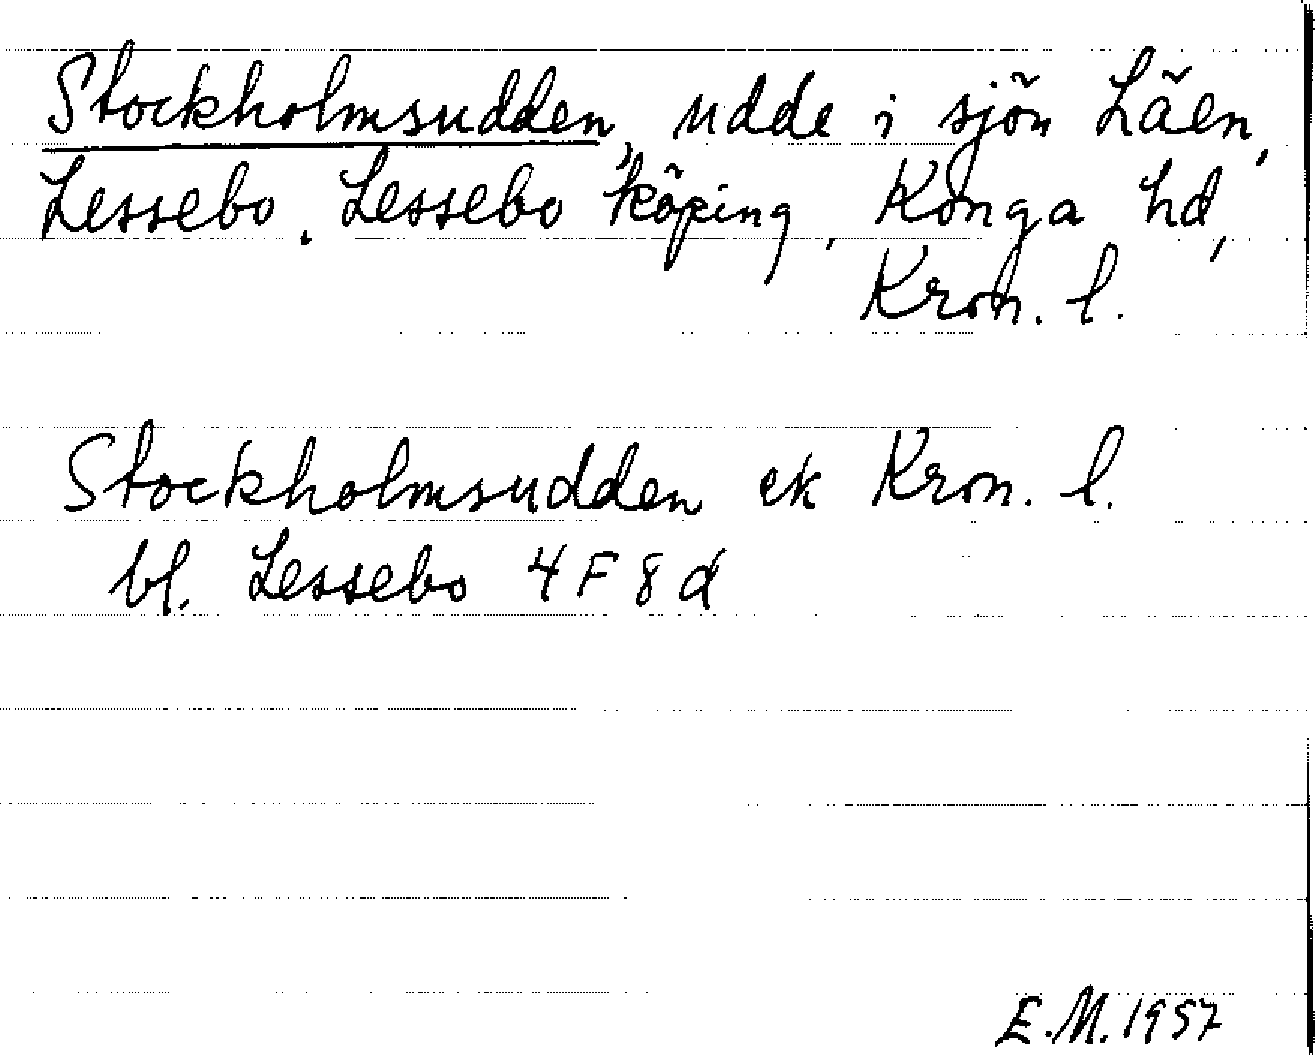 Stockholmsudden, udde i sjön Läen,
Lessebo, Lessebo köping, Konga hd,
Kron. l.
Stockholmsudden ek Kron. l.
bl. Lessebo 4 F 8 d
E.M. 1957